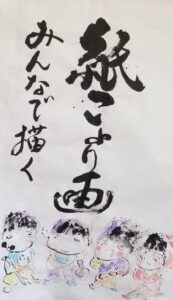 紙こより画
みんなで描く